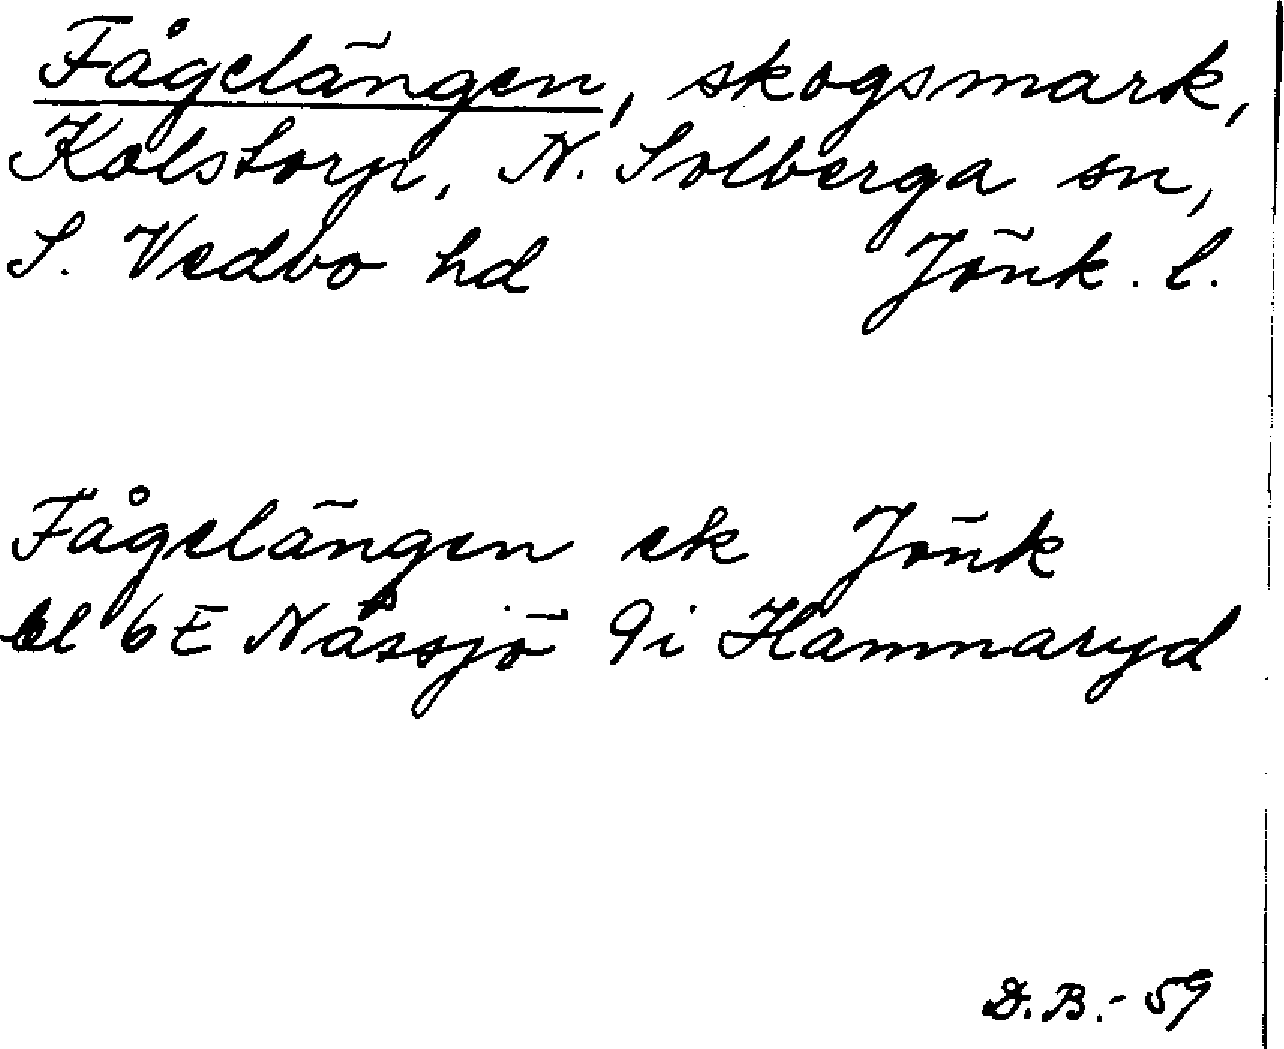 Fågelängen, skogsmark,
Kolstorp, N. Solberga sn,
S. Vedbo hd Jönk. l.
Fågelängen ek Jönk
bl 6E Nässjö 9i Hamnaryd
D.B.- 59